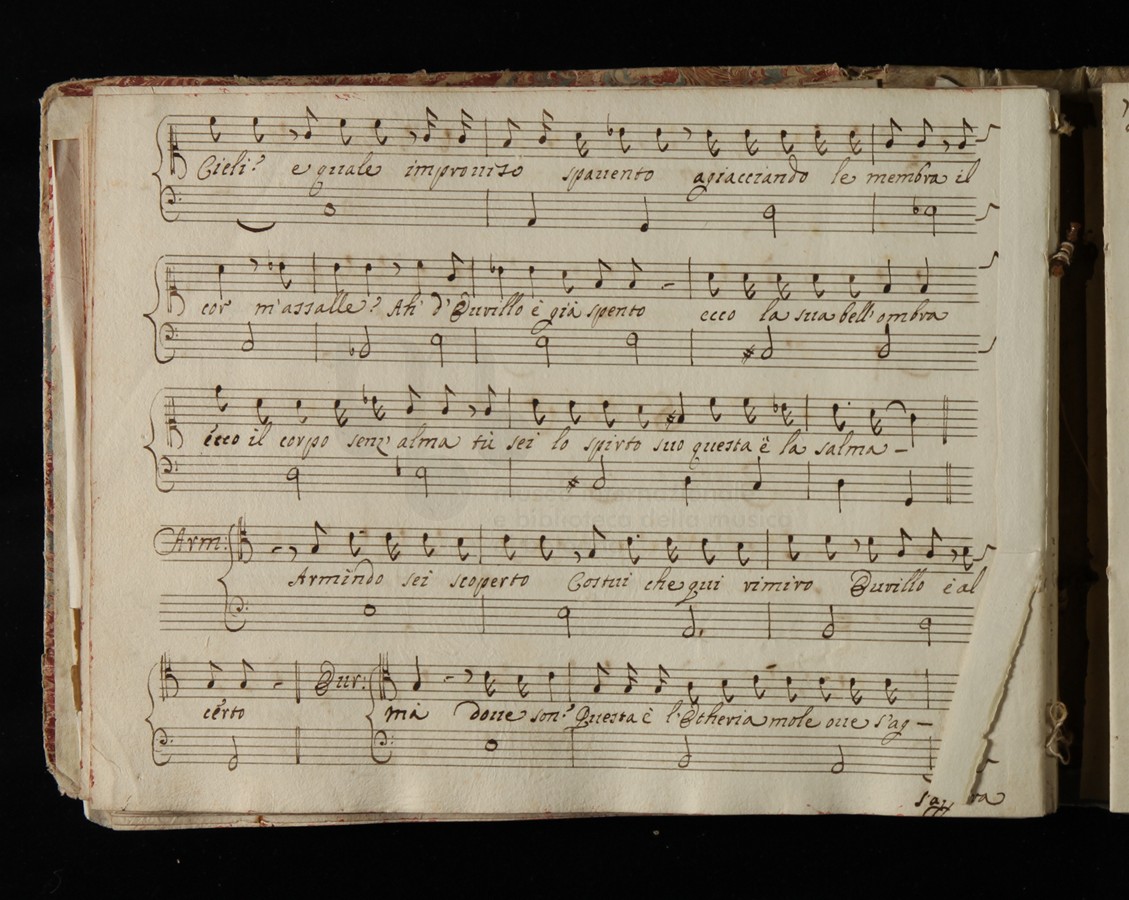 Cieli? e quale improuiso spauento agiacciando le membra il
cor m'assalle? Ah' d'Eurillo è già spento ecco la sua bell'ombra
ecco il corpo senz'alma tù sei lo spirto suo questa è la salma
Arm:
Armindo sei scoperto Costui che qui rimiro Eurillo è al
certo Eur: mà doue son? Questa è l'Etheria mole oue s'ag
museo internazionale
e biblioteca della musica